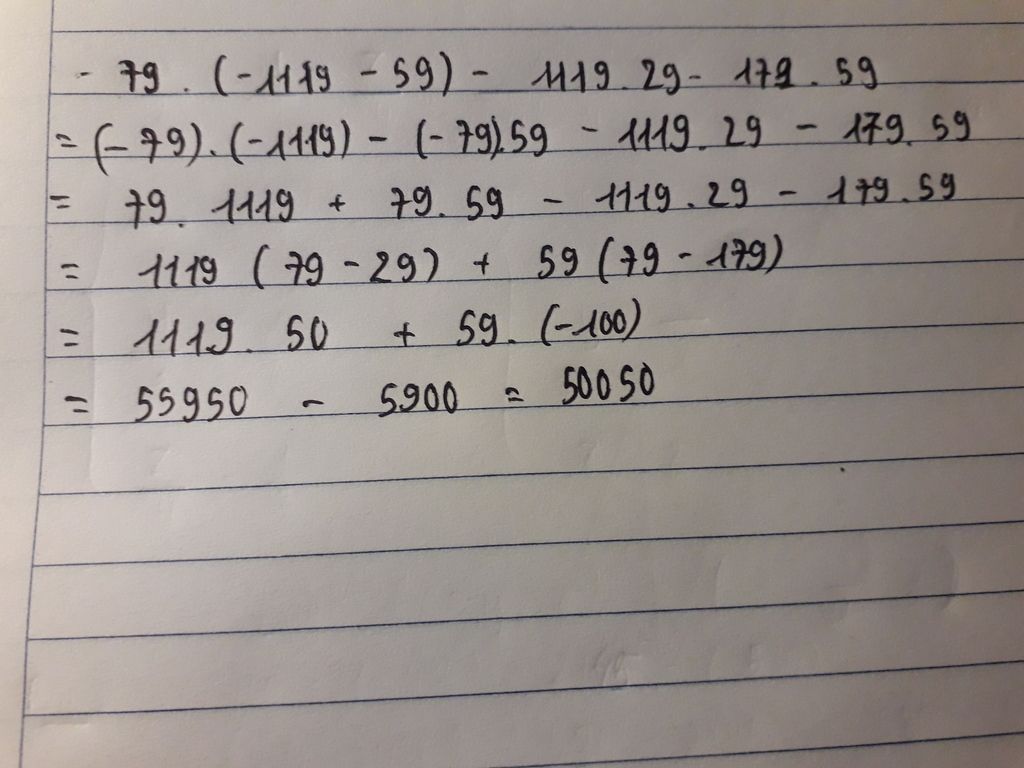 - 79 . (-1119 - 59) - 1119 . 29 - 179 . 59
= (-79) . (-1119) - (-79).59 - 1119 . 29 - 179 . 59
= 79 . 1119 + 79 . 59 - 1119 . 29 - 179 . 59
= 1119 (79 - 29) + 59 (79 - 179)
= 1119 . 50 + 59 . (-100)
= 55950 - 5900 = 50050